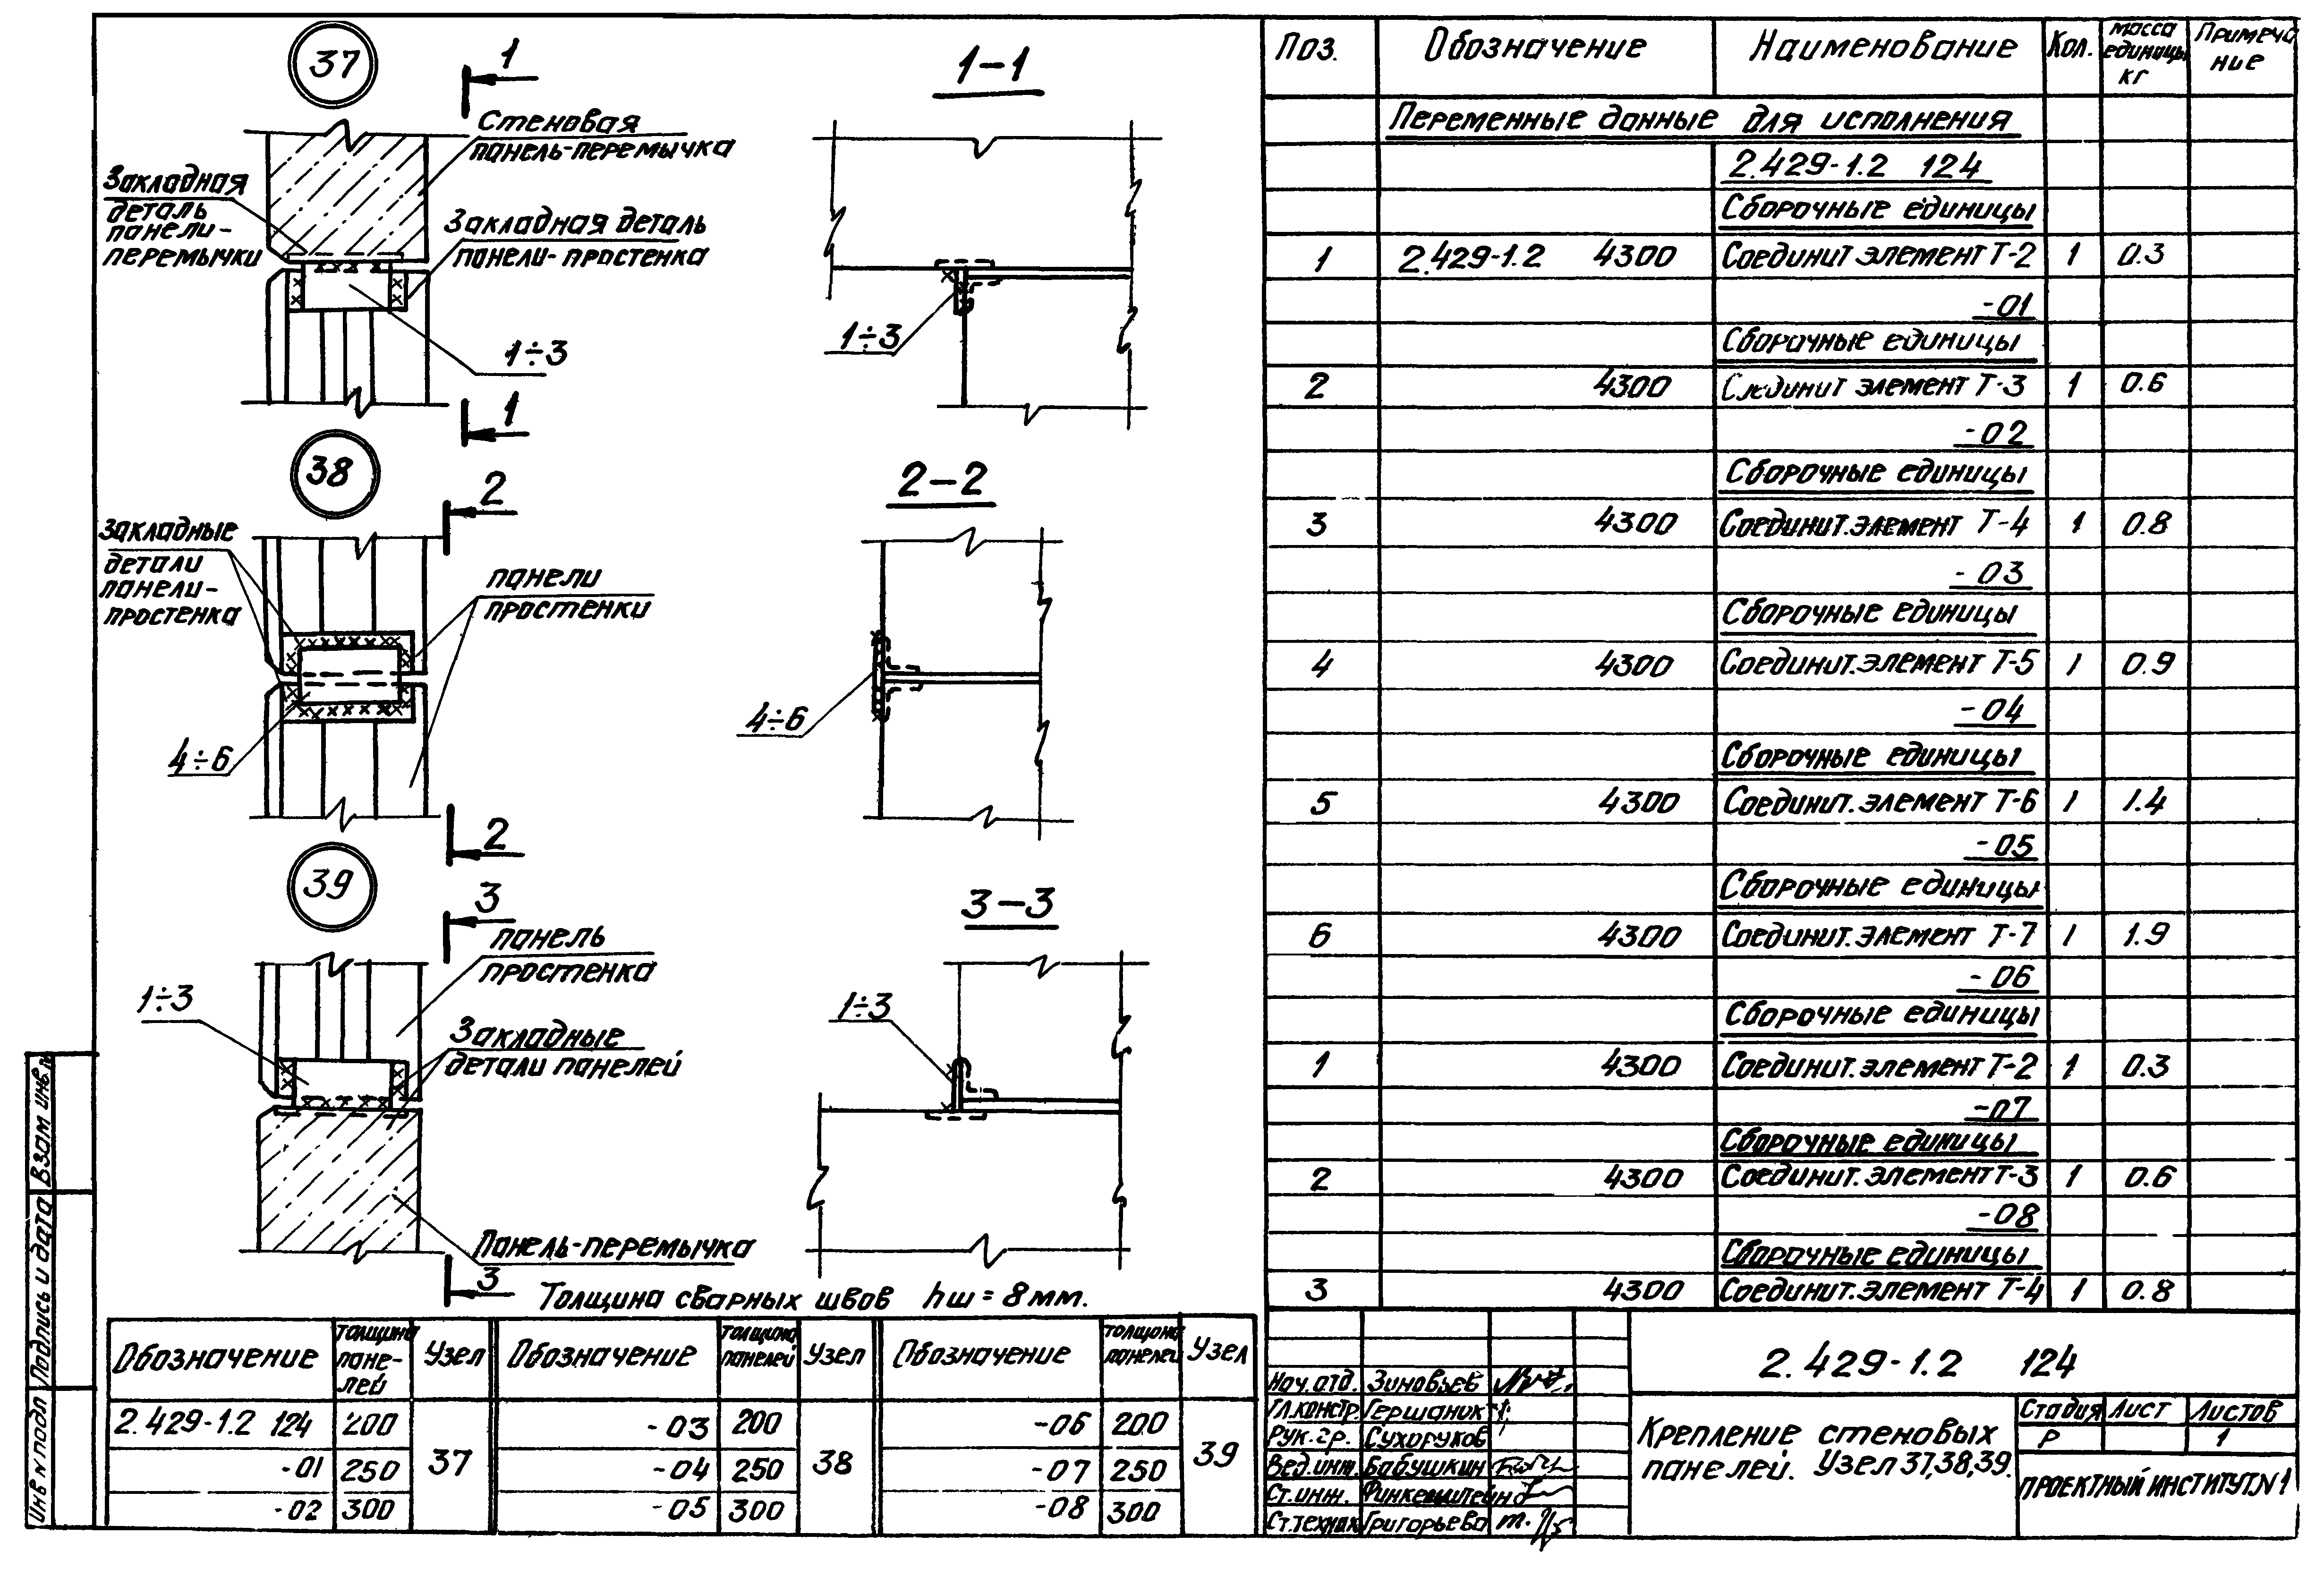 37
1
1-1
Стеновая
панель-перемычка
Закладная
деталь
панели-
перемычки
Закладная деталь
панели-простенка
1÷3
1÷3
1
38
2
2-2
Закладные
детали
панели-
простенка
панели
простенки
4÷6
4÷6
2
39
3
3-3
панель
простенка
1÷3
1÷3
Закладные
детали панелей
Панель-перемычка
3
Толщина сварных швов hш = 8 мм.
Обозначение толщина панелей Узел Обозначение толщина панелей Узел Обозначение толщина панелей Узел
2.429-1.2 124 200 37 -03 200 38 -06 200 39
-01 250 -04 250 -07 250
-02 300 -05 300 -08 300
Поз. Обозначение Наименование Кол. масса единицы кг Примеча ние
Переменные данные для исполнения
2.429-1.2 124
Сборочные единицы
1 2.429-1.2 4300 Соединит элемент Т-2 1 0.3
-01
Сборочные единицы
2 4300 Соединит элемент Т-3 1 0.6
-02
Сборочные единицы
3 4300 Соединит.элемент Т-4 1 0.8
-03
Сборочные единицы
4 4300 Соединит.элемент Т-5 1 0.9
-04
Сборочные единицы
5 4300 Соединит.элемент Т-6 1 1.4
-05
Сборочные единицы
6 4300 Соединит.элемент Т-7 1 1.9
-06
Сборочные единицы
1 4300 Соединит.элемент Т-2 1 0.3
-07
Сборочные единицы
2 4300 Соединит.элемент Т-3 1 0.6
-08
Сборочные единицы
3 4300 Соединит.элемент Т-4 1 0.8
Нач.отд. Зиновьев
Гл.констр. Гершанок
Рук.гр. Сухоруков
Вед.инж. Бабушкин
Ст.инж. Финкельштейн
Ст.техник Григорьева
2.429-1.2 124
Крепление стеновых
панелей. Узел 37,38,39.
Стадия Лист Листов
Р 1
ПРОЕКТНЫЙ ИНСТИТУТ N1
Взам инв.N
Подпись и дата
Инв N подл